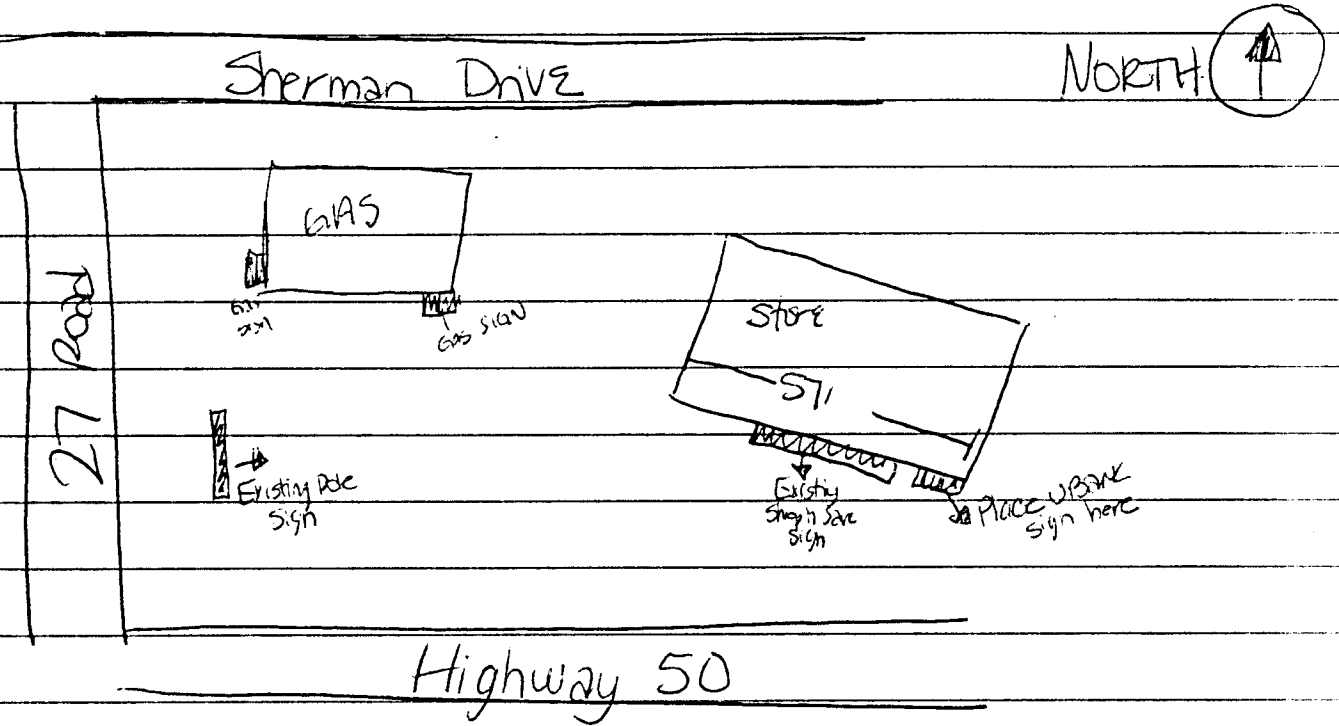 Sherman Drive
NORTH
GAS
Gas
Sign
Gas Sign
27 Road
Store
57'
Existing Pole
Sign
Existing
Shop'n Save
Sign
Place UBank
sign here
Highway 50